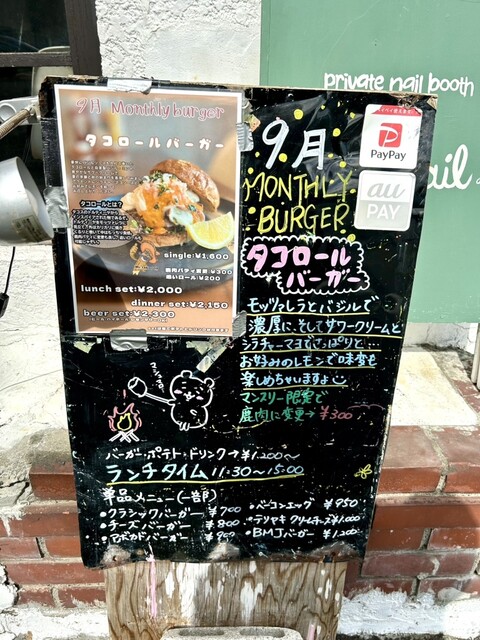 private nail booth
9月 Monthly burger
タコロールバーガー
タコロールとは?
single:¥1,600
鹿肉パティ変更:¥300
追いロール:¥200
lunch set:¥2,000
dinner set:¥2,150
beer set:¥2,300
9月
MONTHLY
BURGER
PayPay
au
PAY
タコロール
バーガー
モッツァレラとバジルで
濃厚に、そしてサワークリームと
シラチャーマヨでさっぱりと…
お好みのレモンで味変も
楽しめちゃいますよ
マンスリー限定で
鹿肉に変更→¥300
バーガー・ポテト・ドリンク→¥1,200〜
ランチタイム 11:30〜15:00
単品メニュー(一部)
・クラシックバーガー ¥700
・チーズバーガー ¥800
・アボカドバーガー ¥900
・ベーコンエッグ ¥950
・テリヤキクリームチーズ ¥1,000
・BMJバーガー ¥1,200